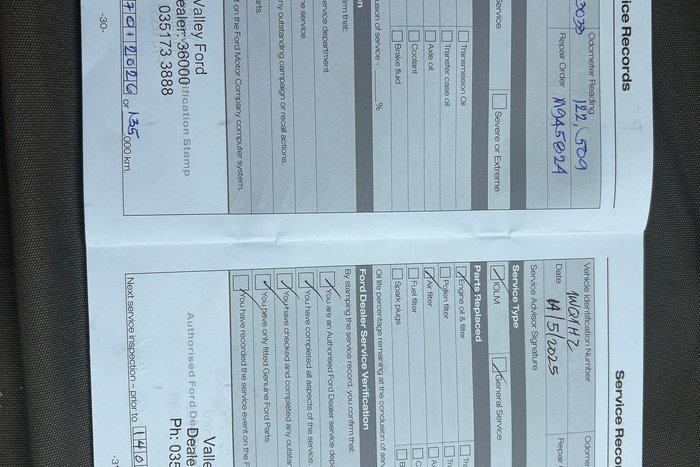 ice Records
Odometer Reading
122,509
Repair Order
M945824
Service
Severe or Extreme
Transmission Oil
Transfer case oil
Axle oil
Coolant
Brake fluid
usion of service - %
on
irm that:
ervice department.
he service.
ny outstanding campaign or recall actions.
arts.
t on the Ford Motor Company computer system.
Valley Ford
ealer: 36000
ification Stamp
035173 3888
2026 or 135,000 km.
-30-
Service Reco
Vehicle Identification Number
Odome
Date
14/5/2025
Repair
Service Advisor Signature
Service Type
IOLM
General Service
Parts Replaced
Engine oil & filter
Pollen filter
Air filter
Fuel filter
Spark plugs
Oil life percentage remaining at the conclusion of ser
Ford Dealer Service Verification
By stamping the service record, you confirm that:
You are an Authorised Ford Dealer service dep
You have completed all aspects of the service.
You have checked and completed any outstan
You have only fitted Genuine Ford Parts.
You have recorded the service event on the F
Authorised Ford De
Valle
Deale
Ph: 035
Next service inspection – prior to
-3